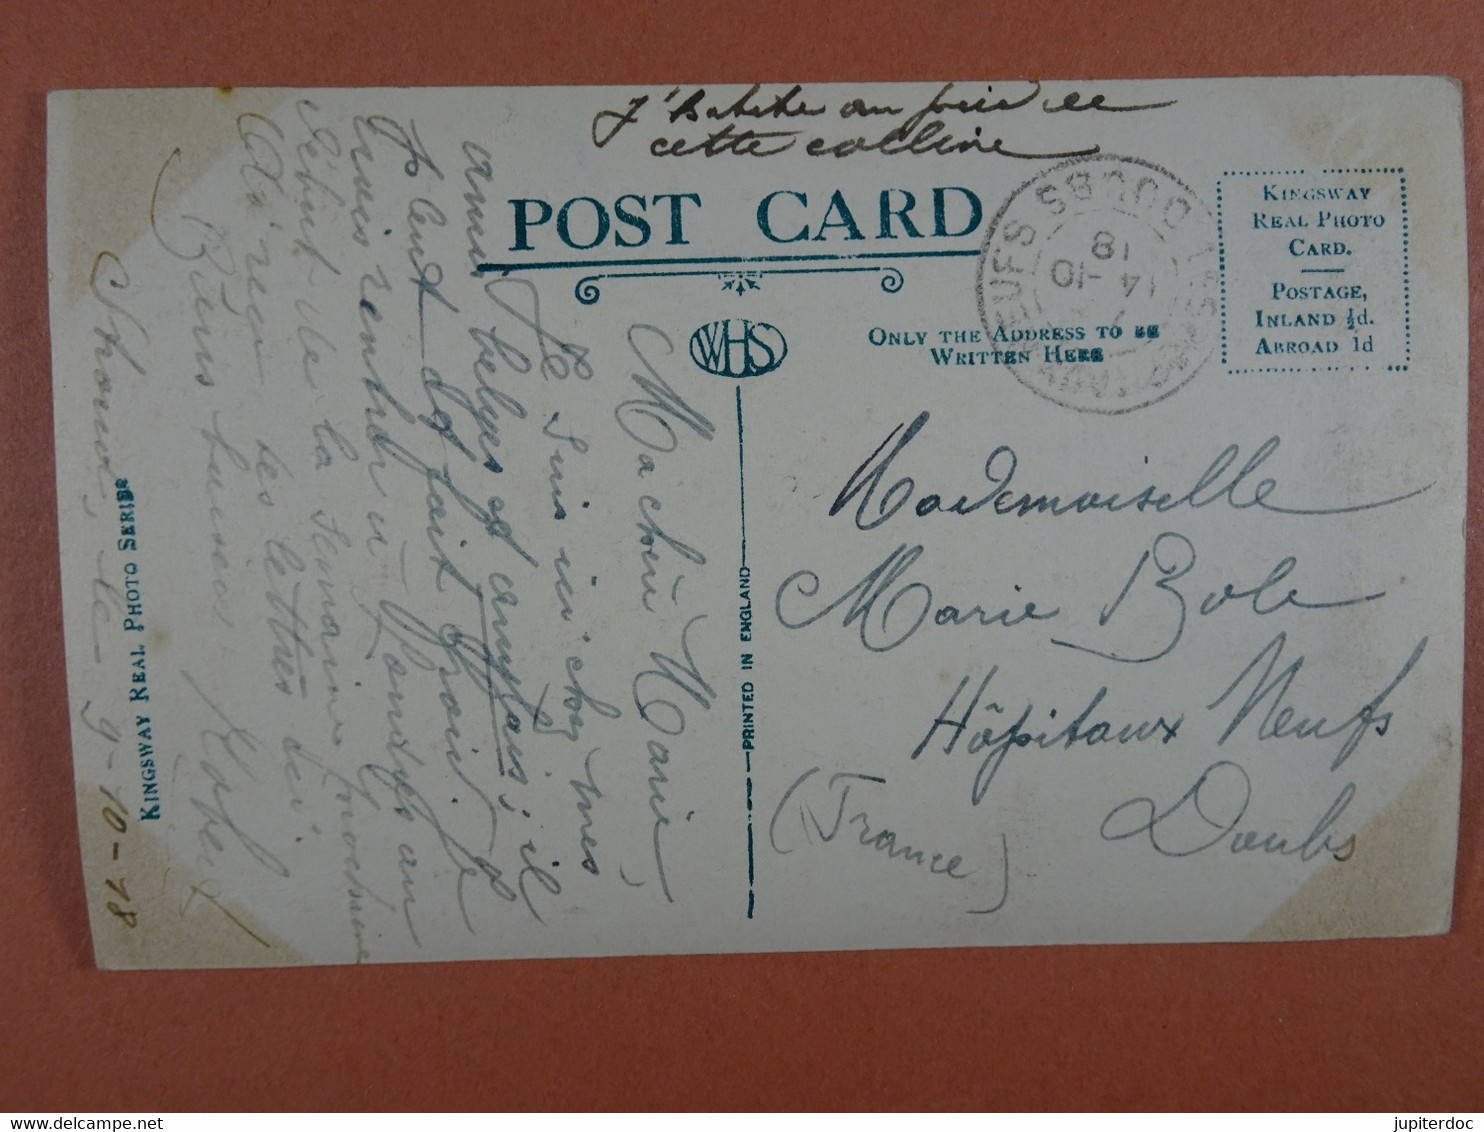 J'habite au pied de
cette colline
POST CARD
WHS
ONLY THE ADDRESS TO BE
WRITTEN HERE
KINGSWAY
REAL PHOTO
CARD.
POSTAGE,
INLAND ½d.
ABROAD 1d
DOUBS
14 -10
18
Mademoiselle
Marie Bole
Hôpitaux Neufs
Doubs
(France)
PRINTED IN ENGLAND
Ma chère Marie,
Je suis ici chez mes
amis belges et anglais; il
pleut et fait froid. Je
vais rentrer à Londres au
début de la semaine prochaine
Ai reçu les lettres ici.
Bons baisers Robert
le 9-10-18
KINGSWAY REAL PHOTO SERIES
jupiterdoc